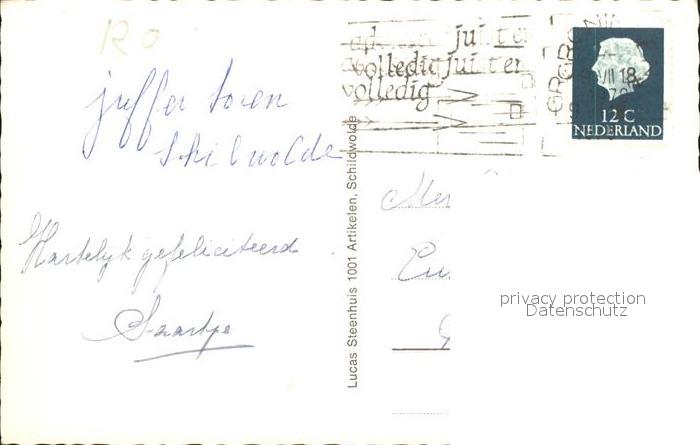 R O
juffertoren
Schilwolde
Hartelijk gefeliciteerd
Saartje
Lucas Steenhuis 1001 Artikelen, Schildwolde
juist en
volledig juist en
volledig
12 C
NEDERLAND
privacy protection
Datenschutz